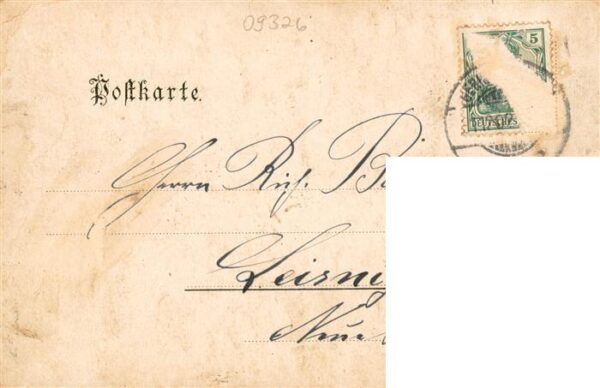 09326
5
Postkarte.
Herrn Rich.
Leisni
Neue